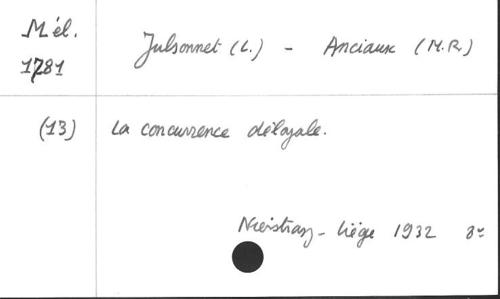 Mél.
1781
Julsonnet (L.) - Anciaux (M.R.)
(13) La concurrence déloyale.
Liège 1932 8º